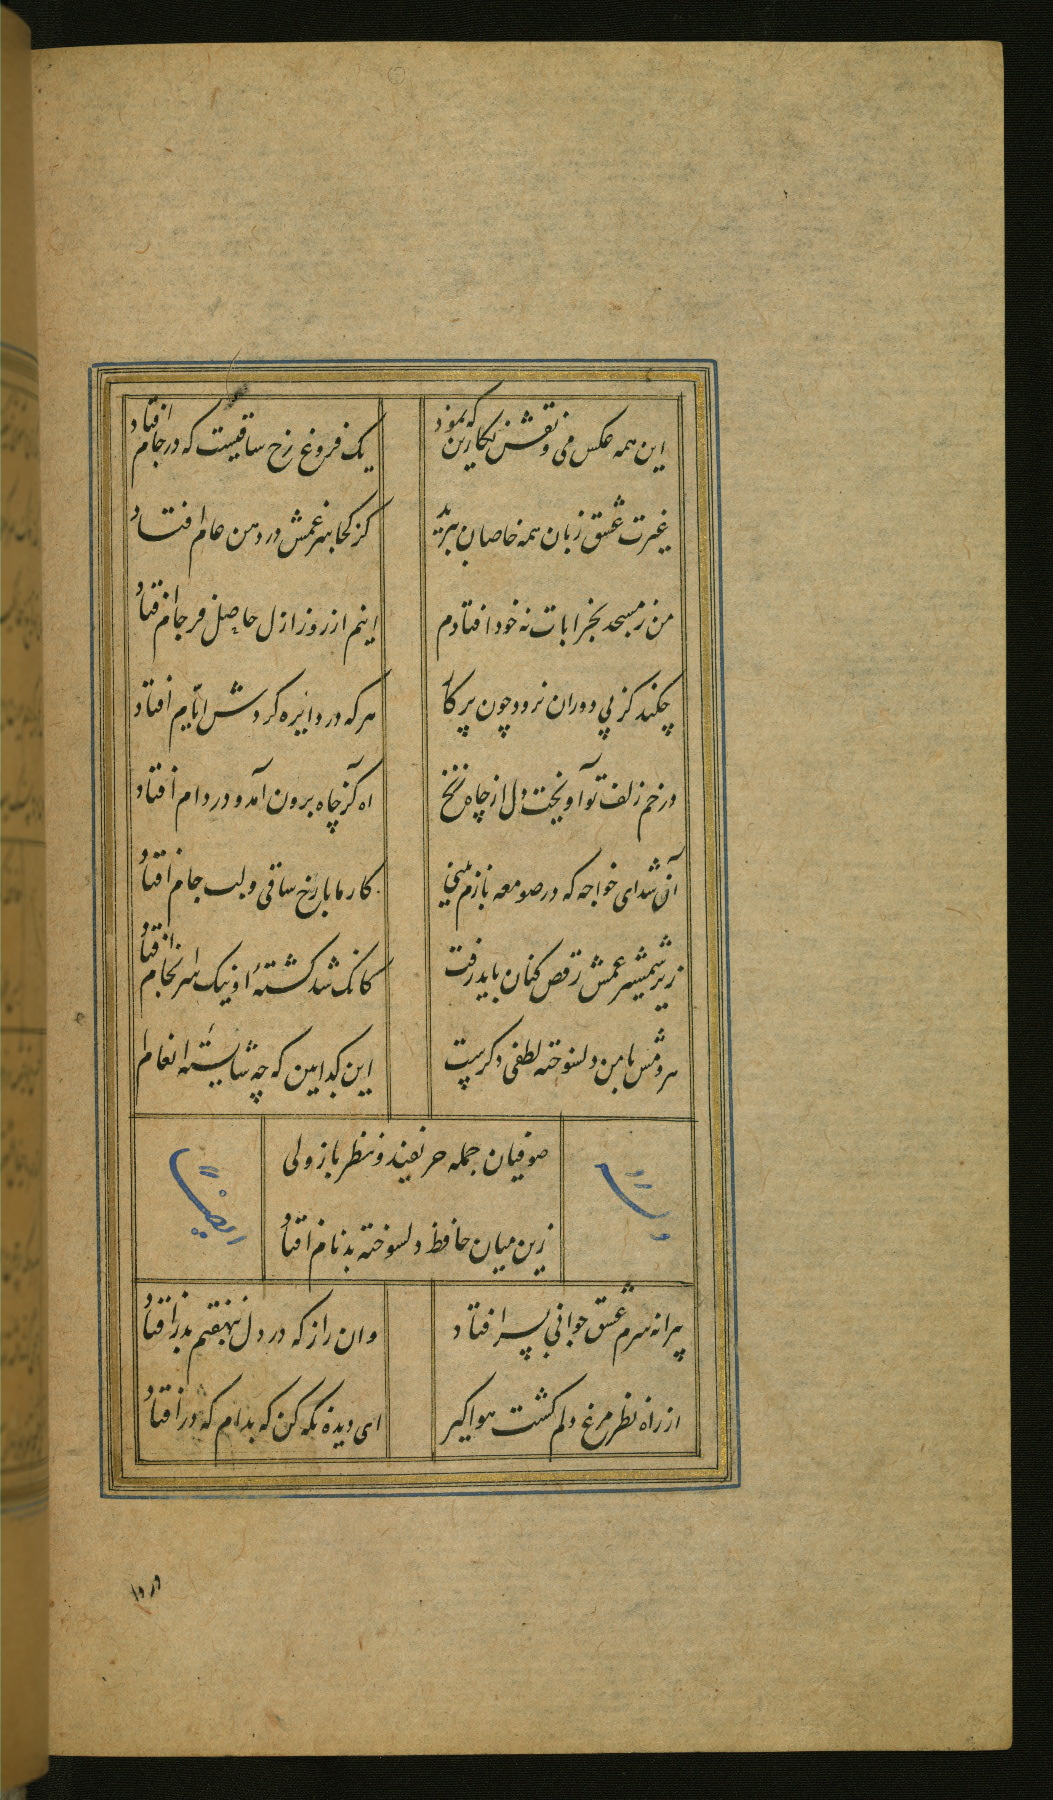 این همه عکس می و نقش نگارین که نمود
یک فروغ رخ ساقیست که در جام افتاد
غیرت عشق زبان همه خاصان ببرید
کز کجا سر غمش در دهن عام افتاد
من ز مسجد بخرابات نه خود افتادم
اینم از روز ازل حاصل فرجام افتاد
چکند کز پی دوران نرود چون پرکار
هر که در دایره کردش ایام افتاد
در خم زلف تو آویخت دل از چاه زنخ
اه کز چاه برون آمد و در دام افتاد
آن شد ای خواجه که در صومعه بازم بینی
کار ما با رخ ساقی و لب جام افتاد
زیر شمشیر غمش رقص کنان باید رفت
کانک شد کشتهٔ او نیک سرانجام افتاد
هر دمش با من دلسوخته لطفی دکرست
این کدا بین که چه شایستهٔ انعام ا
صوفیان جمله حریفند و نظرباز ولی
زین میان حافظ دلسوخته بدنام افتاد
وله
ایضا
پیرانه سرم عشق جوانی بسر افتاد
وان راز که در دل بنهفتم بدر افتاد
از راه نظر مرغ دلم کشت هواکیر
ای دیده نکه کن که بدام که در افتاد